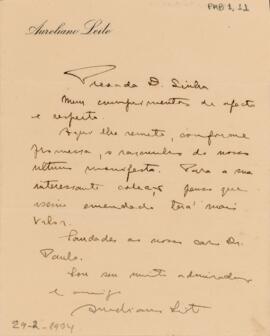 PMB 1, 11
Aureliano Leite
Prezada D. Sinhá
Meus cumprimentos de afecto
e respeito.
Aqui lhe remeto, conforme
promessa, o rascunho do nosso
ultimo manifesto. Para a sua
interessante coleção penso que
assim emendado terá mais
valor.
Saudades ao nosso caro Dr.
Paulo.
Sou seu muito admirador
e amigo
Aureliano Leite
29-2-1934